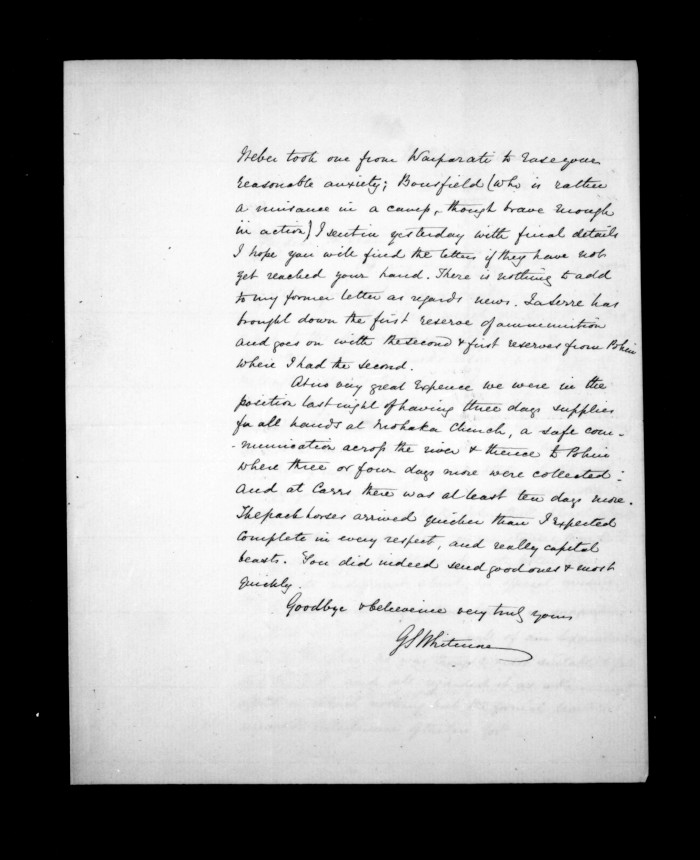 Weber took one from Waiparati to ease your
reasonable anxiety; Bousfield (who is rather
a nuisance in a camp, though brave enough
in action) I sent in yesterday with final details
I hope you will find the letters if they have not
yet reached your hand. There is nothing to add
to my former letter as regards news. LaSerre has
brought down the first reserve of ammunition
and goes on with the second & first reserves from Pohui
where I had the second.
At no very great Expence we were in the
position last night of having three days supplies
for all hands at Mohaka Church, a safe com-
-munication across the river & thence to Pohui
where three or four days more were collected:
And at Carrs there was at least ten days more.
The pack horses arrived quicker than I Expected
Complete in every respect, and really capital
beasts. You did indeed send good ones & most
quickly.
Goodbye & believe me very truly yours
GSWhitmore